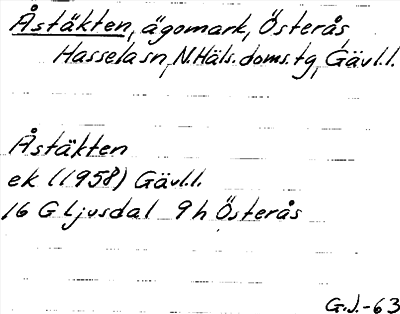 Åstäkten, ägomark, Österås
Hassela sn, N.Häls. doms.tg, Gävl.l.
Åstäkten
ek (1958) Gävl.l.
16 G Ljusdal 9h Österås
G.J.-63